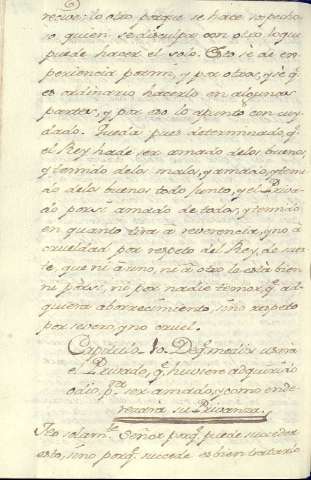 recios: lo otro porque se hace sospecho
so quien se disculpa con otro lo que
puede hacer el solo. Esto sè de ex
periencia por mi, y por otros, y sè q.
es ordinario hacerlo en algunas
partes, y por eso lo apunto con cuy
dado. Queda pues determinado, q.
el Rey ha de ser amado de los buenos,
y temido de los malos, y amado, y temi
do de los buenos todo junto, y el Priva
do por si amado de todos, y temido
en quanto tira à reverencia, y no à
crueldad por respeto del Rey, de suer
te, que ni à uno, ni à otro le està bien
ni para si, ni por nadie temor, q. ad
quiera aborrecimiento, sino respeto
por severo, y no cruel.
Capitulo 10. De q. medios usarà
el Privado, q. huviere adquirido
odio, p.a ser amado, y como ende
rezarà su Privanza.
No solam.te Señor porq. puede suceder
esto, sino porq. sucede es bien tratarlo